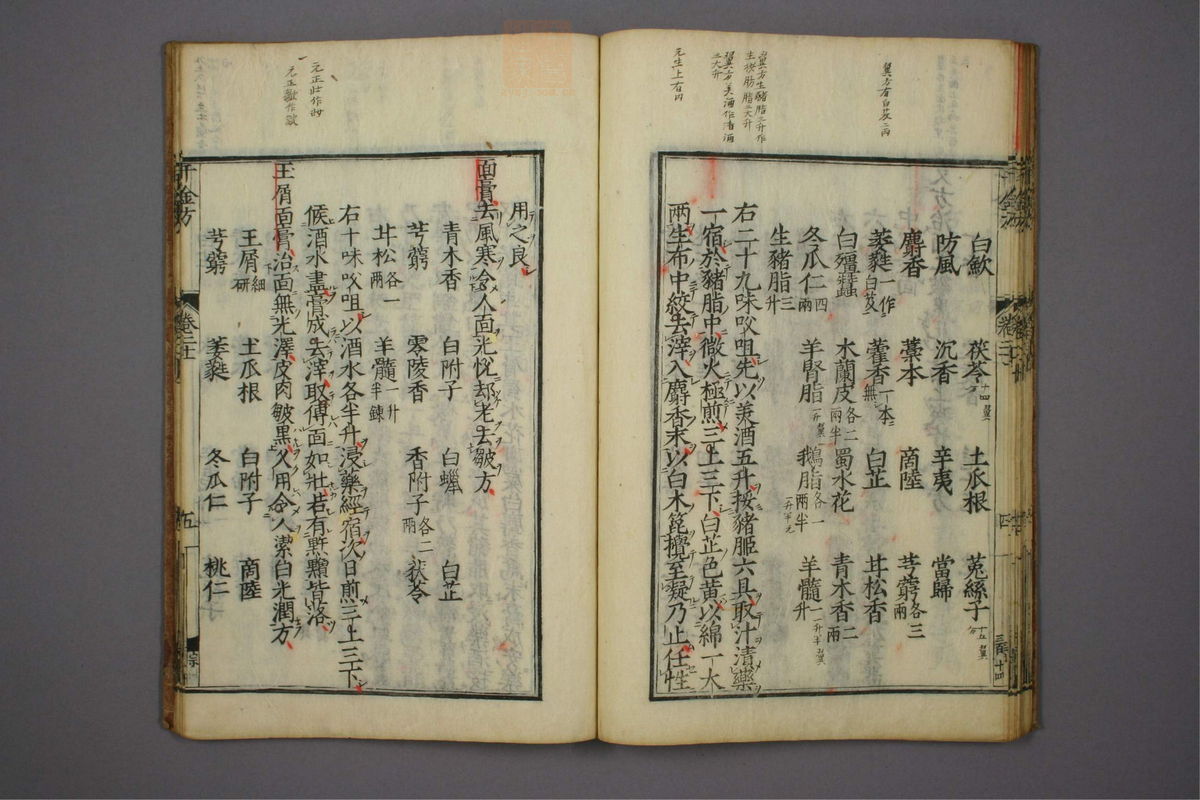 翼方有白芨二兩
翼方生豬脂三升作
生猪肪脂三大升
翼方美酒作清酒
三大升
元生上有内
白歛 茯苓十四翼 土瓜根 菟絲子
防風 沉香 辛夷 當歸
麝香 藁本 商陸 芎藭各三兩
葳蕤一作白芨 藿香一本無 白芷 甘松香
白殭蠶 木蘭皮各二兩半 蜀水花 青木香二兩
冬瓜仁四兩 羊腎脂 鵝脂各一兩半 羊髓一升
生豬脂三升
右二十九味㕮咀先以美酒五升挼豬胵六具取汁清藥
一宿於豬脂中微火極煎三上三下白芷色黄以綿一大
兩生布中絞去滓入麝香末以白木箆攪至凝乃止任性
用之良
面膏去風寒令人面光悦却老去皺方
青木香 白附子 白蠟 白芷
芎藭 零陵香 香附子各二兩 茯苓
甘松各一兩 羊髓一升半鍊
右十味㕮咀以酒水各半升浸藥經宿次日煎三上三下
候酒水盡膏成去滓取傅面如妝若有䵟䵳皆落
玉屑面膏治面無光澤皮肉皺黑久用令人潔白光潤方
玉屑細研 土瓜根 白附子 商陸
芎藭 萎蕤 冬瓜仁 桃仁
千金方 卷二十 五
元正壯作妝
元正皺作皴